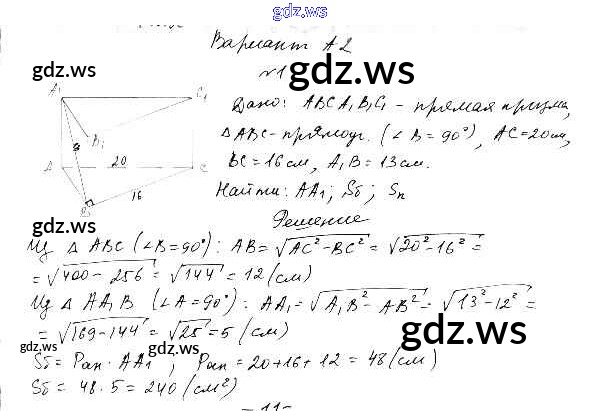 gdz.ws
Вариант А2
gdz.ws gdz.ws
№1
A₁ C₁
Дано: ABCA₁B₁C₁ - прямая призма,
B₁
△ABC - прямоуг. (∠B = 90°), AC = 20 см,
20
A C
BC = 16 см, A₁B = 13 см.
16
Найти: AA₁; Sб; Sп
B
gdz.ws gdz.ws
Решение
Из △ABC (∠B = 90°): AB = √AC² - BC² = √20² - 16² =
= √400 - 256 = √144 = 12 (см)
Из △AA₁B (∠A = 90°): AA₁ = √A₁B² - AB² = √13² - 12² =
= √169 - 144 = √25 = 5 (см)
gdz.ws gdz.ws gdz.ws
Sб = Pосн · AA₁, Pосн = 20 + 16 + 12 = 48 (см)
Sб = 48 · 5 = 240 (см²)
gdz.ws